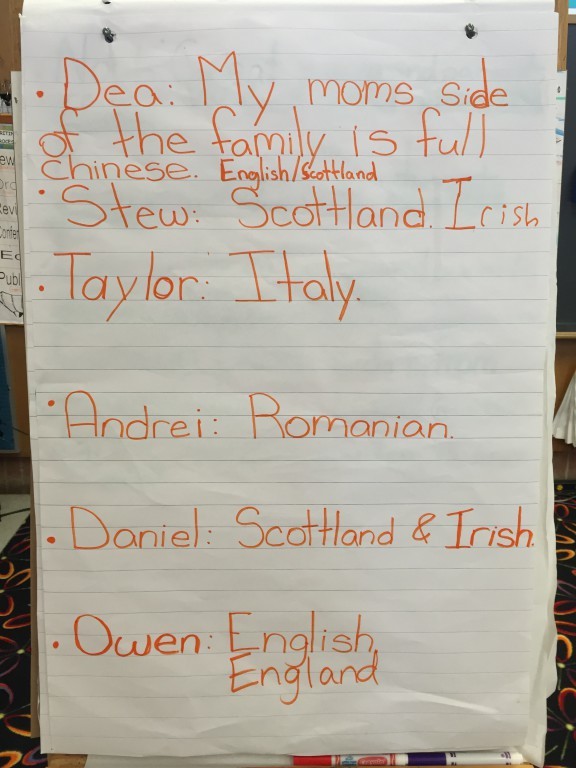 • Dea: My moms side
of the family is full
chinese. English/Scottland
• Stew: Scottland. Irish
• Taylor: Italy.
• Andrei: Romanian.
• Daniel: Scottland & Irish.
• Owen: English,
England